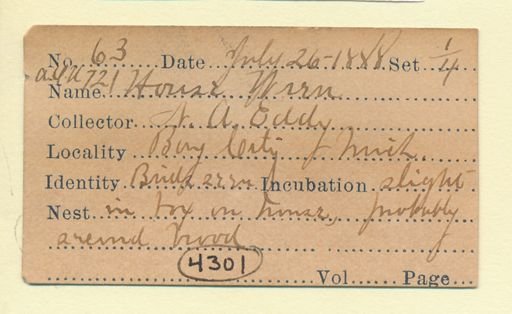 No. 63 Date July 26-1888 Set 1/4
a.o.u 721
Name House Wren
Collector N. A. Eddy
Locality Bay City, Mich.
Identity Birds seen Incubation slight
Nest in box on house, probably
second brood
4301
Vol. Page